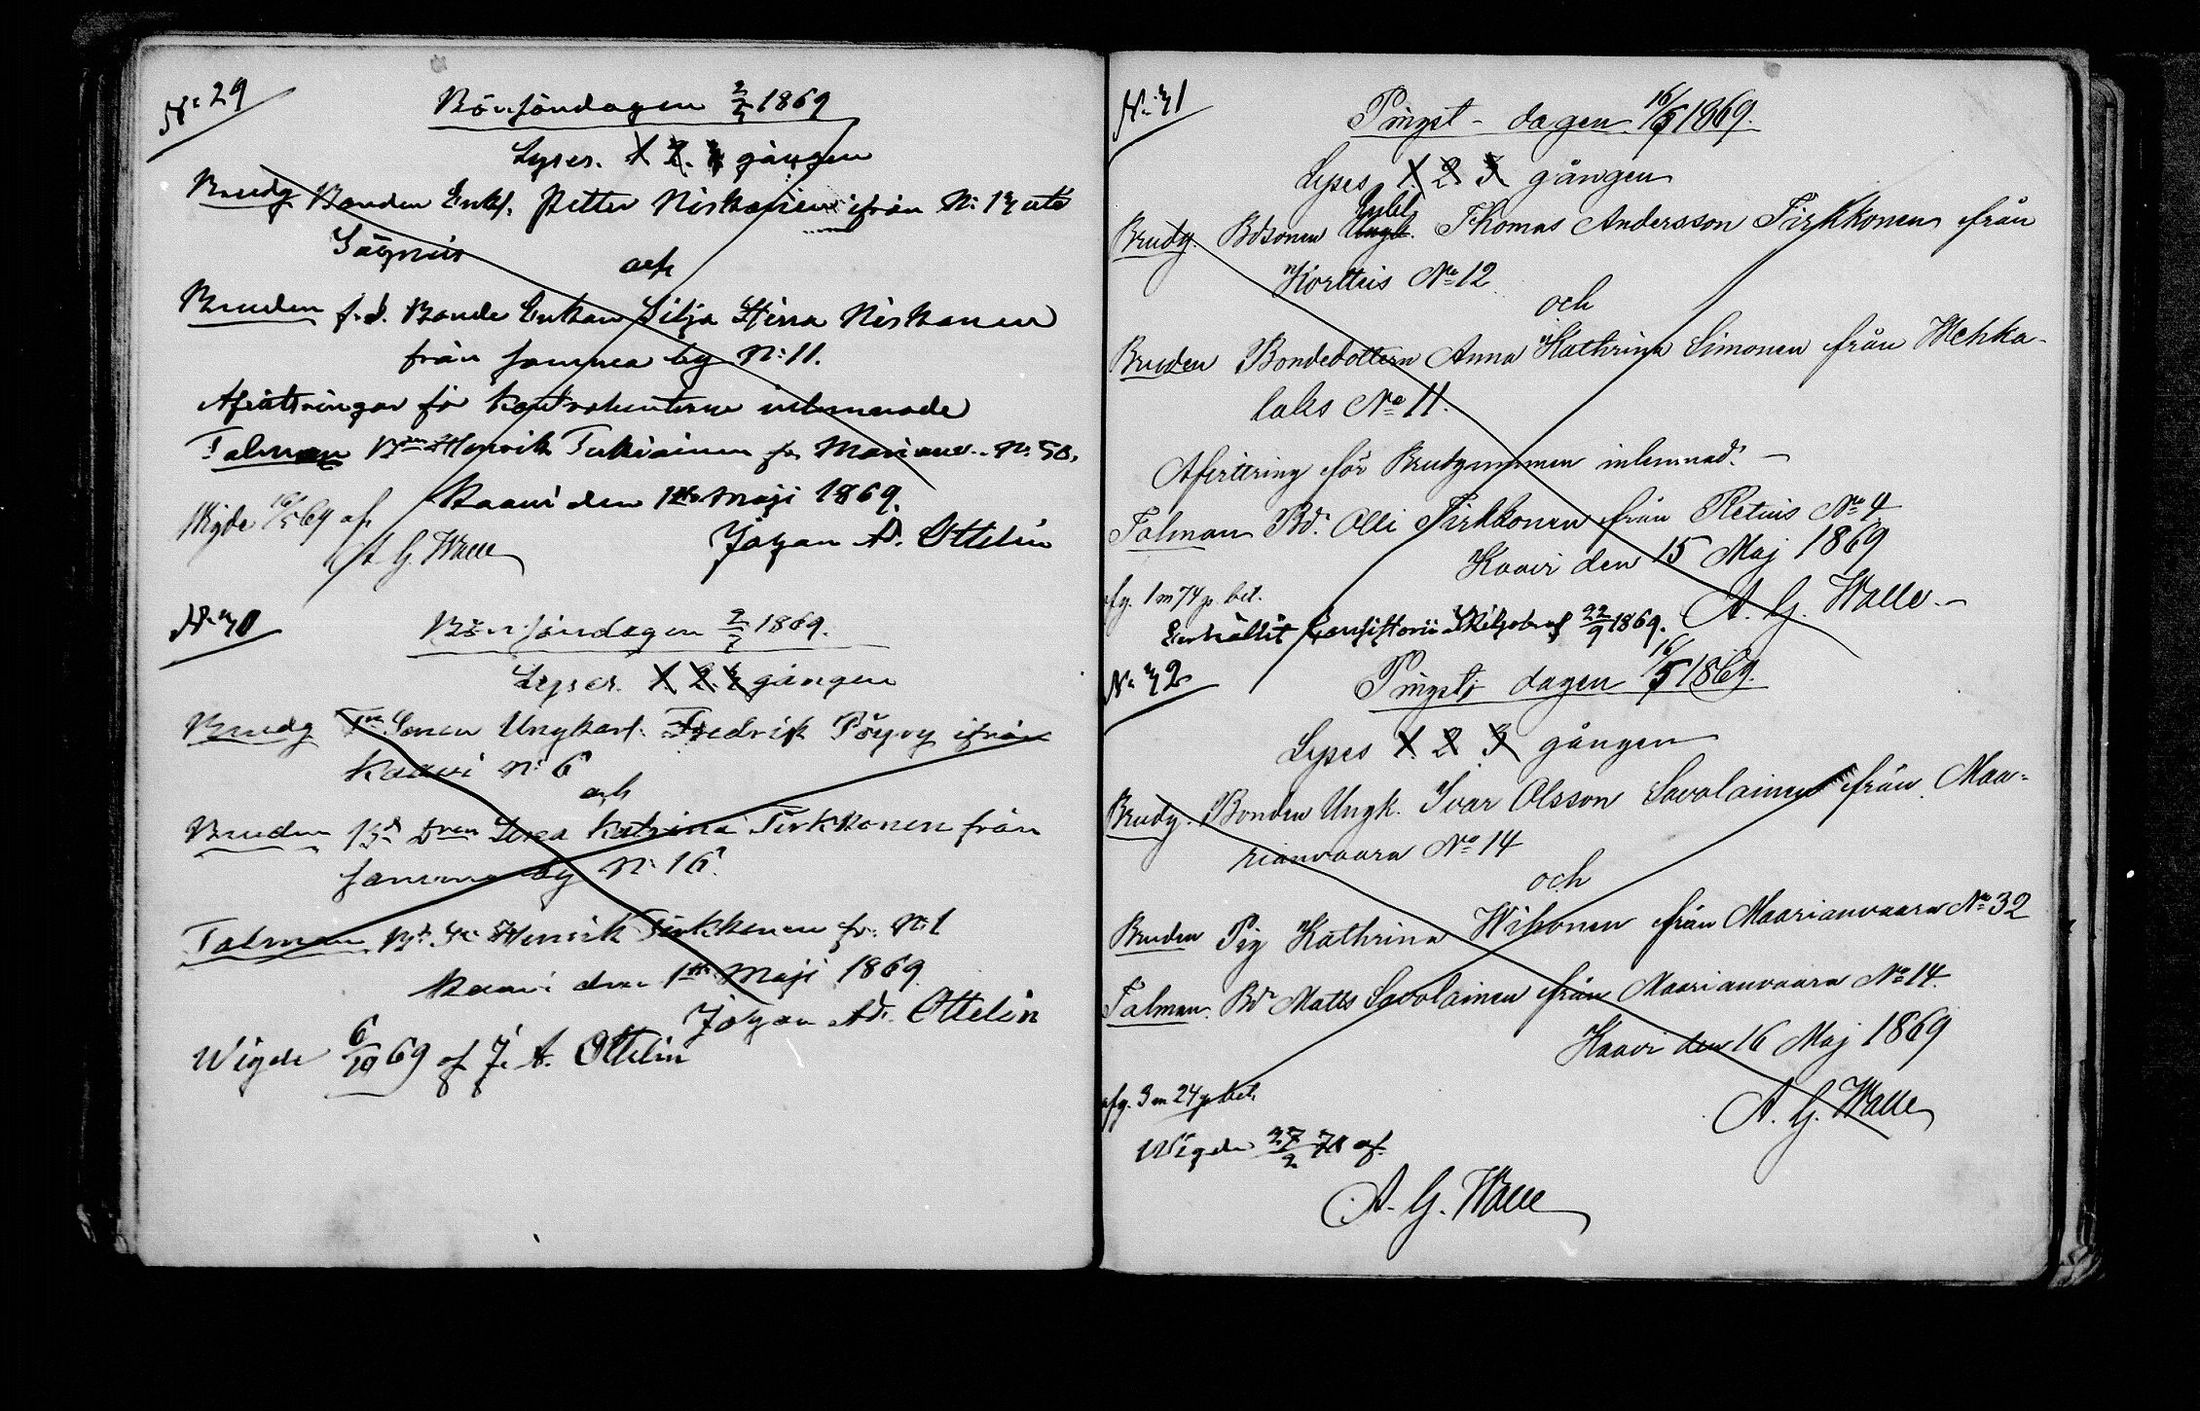 No 29
Bönsöndagen 2/5 1869
Lyses. 1. 2. 3 gången
Brudg Bonden Enkl. Petter Niskanen ifrån No 13 uti
Sägnis
och
Bruden f.d. Bonde Enkan Silja Stina Niskanen
från samma by No 11.
Afvittringar för kontrahenterne inlemnade
Talman Henrik Turkiainen fr. No 50.
Kaavi den 1ste Maji 1869.
Johan Ad. Ottelin
Wigde 16/5 69 af
A G. Walle
No 30
Bönsöndagen 2/5 1869.
Lyses. 1. 2. 3 gången
Brudg Sonen Ungkarl. Fredrik Pöyry ifrån
Kaavi No 6
och
Bruden Bd Dren Katrina Tirkkonen från
samma by No 16.
Talman Henrik Tirkkonen fr. No 1
Kaavi den 1ste Maji 1869
Johan Ad. Ottelin
Wigde 6/10 69 af J. A. Ottelin
No 31
Pingst-dagen 16/5 1869.
Lyses 1. 2. 3 gången
Brudg. Bdsonen Enkl. Thomas Andersson Tirkkonen från
Korttis No 12
och
Bruden Bondedottern Anna Kathrina Simonen från Mehka-
laks No 11.
Afvittring för Brudgummen inlemnad. —
Talman Bd. Olli Tirkkonen från Retuis No 4
Kaavi den 15 Maj 1869
afg. 1 m 74 p. bet.
A. G. Walle. —
Erhållit Consistorii Skiljobref 22/9 1869.
No 32
Pingst dagen 16/5 1869.
Lyses 1. 2. 3 gången
Brudg. Bonden Ungk. Ivar Olsson Savolainen från Maa-
rianvaara No 14
och
Bruden Pig Kathrina Wihonen från Maarianvaara No 32
Talman. Bd Matts Savolainen från Maarianvaara No 14.
Kaavi den 16 Maj 1869
A. G. Walle
afg. 3 m 24 p bet.
Wigde 27/2 70 af
A. G. Walle